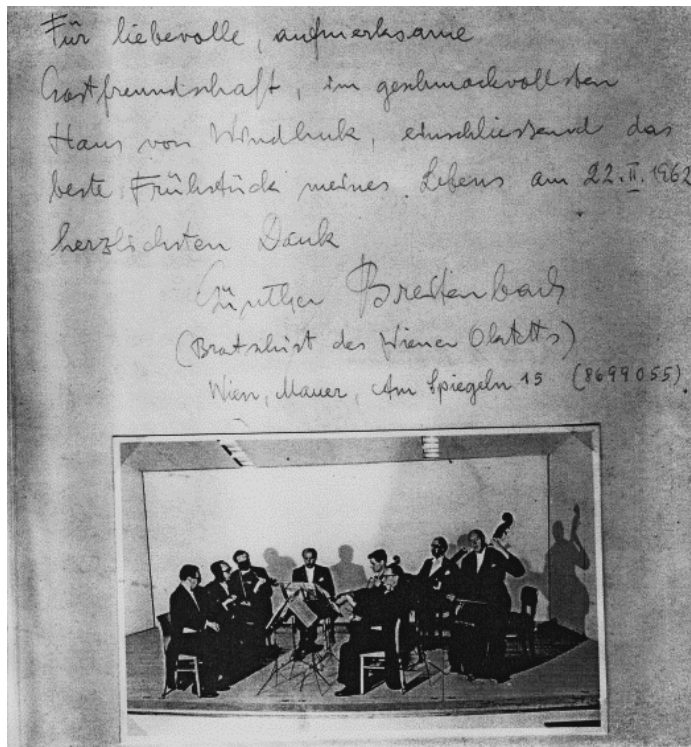 Für liebevolle, aufmerksame
Gastfreundschaft, im geschmackvollsten
Haus von Windhuk, einschliessend das
beste Frühstück meines Lebens am 22.II.1962
herzlichsten Dank
Günther Breitenbach
(Bratschist des Wiener Oktetts)
Wien, Mauer, Am Spiegeln 15 (8699055)